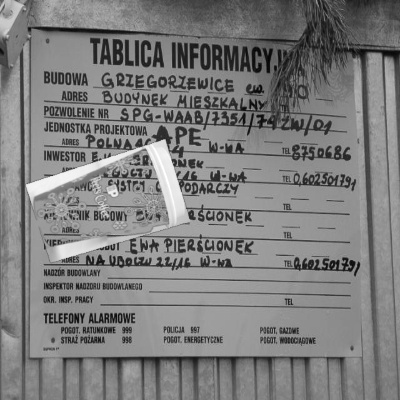 TABLICA INFORMACYJ
BUDOWA GRZEGORZEWICE ew.
ADRES BUDYNEK MIESZKALNY
POZWOLENIE NR SPG-WAAB/7351/74 ZW/01
JEDNOSTKA PROJEKTOWA APE
ADRES POLNA W-WA TEL 8750686
INWESTOR
22/16 W-WA TEL 0,602501791
SYSTEM GOSPODARCZY
BUDOWY PIERŚCIONEK
EWA PIERŚCIONEK
ADRES NA UBOCZU 22/16 W-WA TEL 0,602501791
NADZÓR BUDOWLANY
INSPEKTOR NADZORU BUDOWLANEGO
OKR. INSP. PRACY TEL
TELEFONY ALARMOWE
POGOT. RATUNKOWE 999 POLICJA 997 POGOT. GAZOWE
STRAŻ POŻARNA 998 POGOT. ENERGETYCZNE POGOT. WODOCIĄGOWE